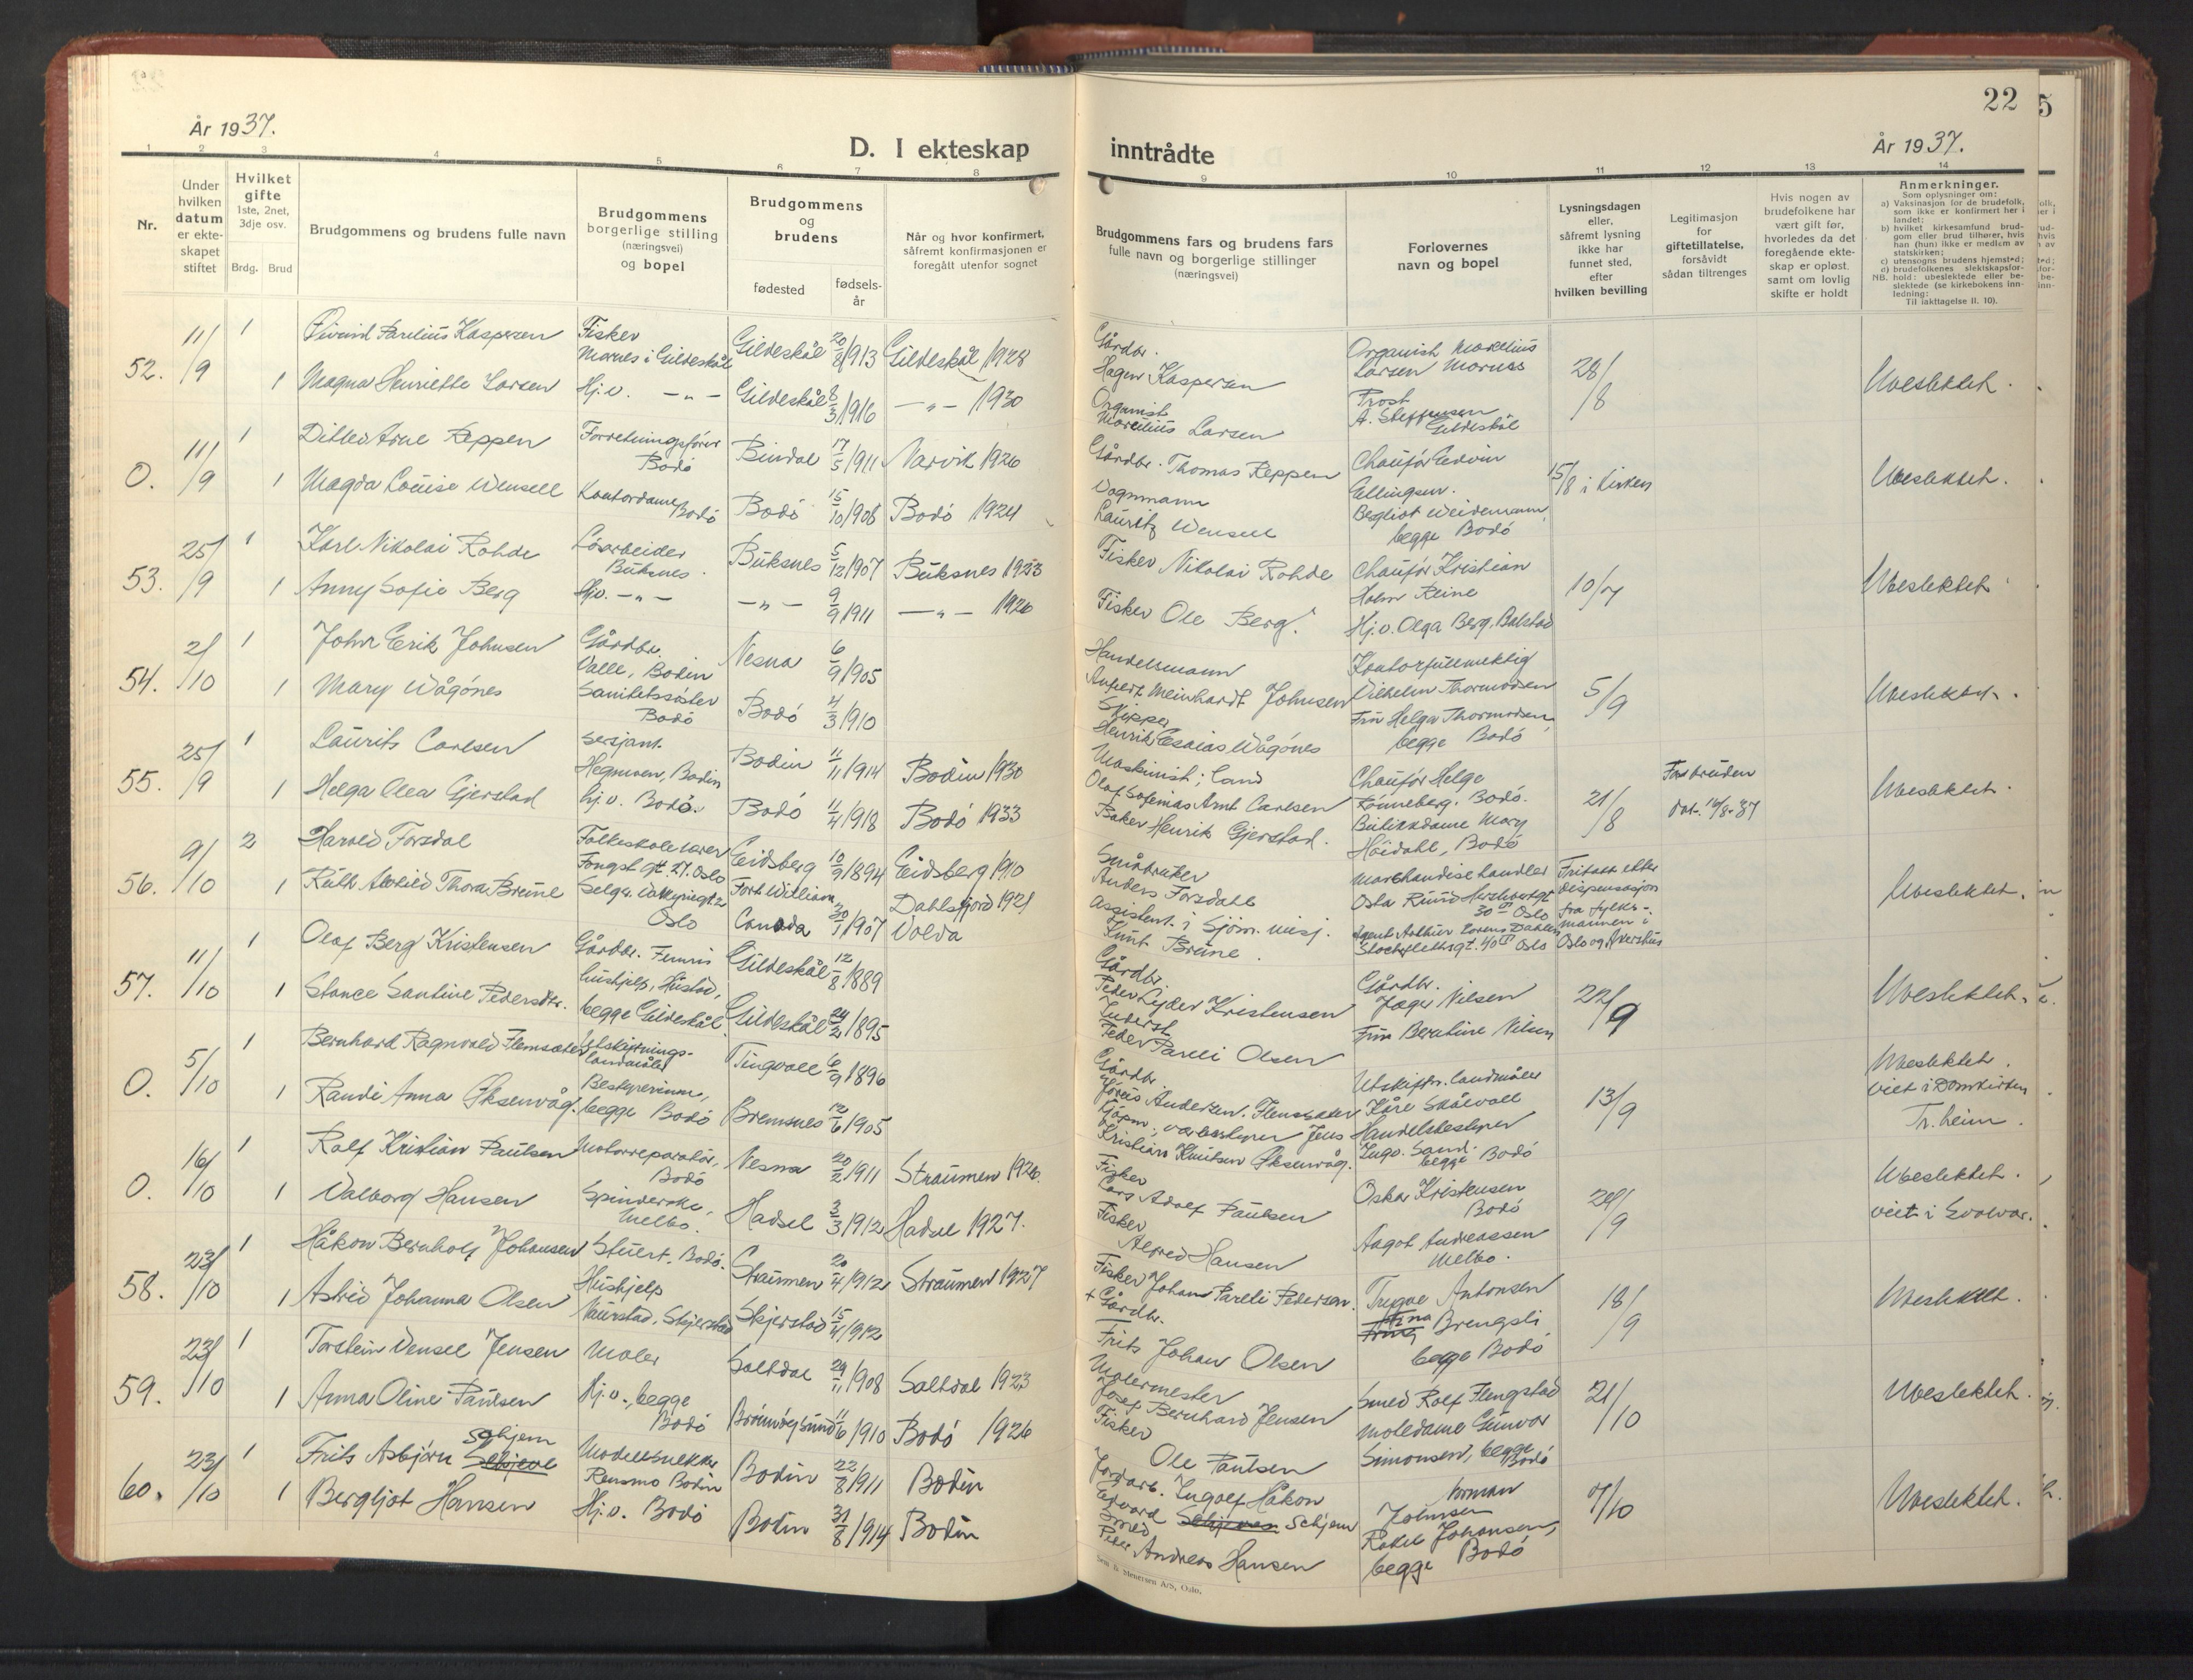 22
År 1937.
D. I ekteskap
inntrådte
År 1937.
1 2 3 4 5 6 7 8 9 10 11 12 13 14
Nr.
Under hvilken datum er ekteskapet stiftet
Hvilket gifte 1ste, 2net, 3dje osv.
Brdg. Brud
Brudgommens og brudens fulle navn
Brudgommens borgerlige stilling (næringsvei) og bopel
Brudgommens og brudens
fødested
fødselsår
Når og hvor konfirmert, såfremt konfirmasjonen er foregått utenfor sognet
Brudgommens fars og brudens fars fulle navn og borgerlige stillinger (næringsvei)
Forlovernes navn og bopel
Lysningsdagen eller, såfremt lysning ikke har funnet sted, efter hvilken bevilling
Legitimasjon for giftetillatelse, forsåvidt sådan tiltrenges
Hvis nogen av brudefolkene har vært gift før, hvorledes da det foregående ekteskap er opløst, samt om lovlig skifte er holdt
Anmerkninger.
Som oplysninger om:
a) Vaksinasjon for de brudefolk, som ikke er konfirmert her i landet;
b) hvilket kirkesamfund brudgom eller brud tilhører, hvis han (hun) ikke er medlem av statskirken;
c) utensogns brudens hjemsted;
d) brudefolkenes slektskapsforhold: ubeslektede eller beslektede (se kirkebokens innledning: Til iakttagelse II. 10).
NB.
52. 11/9 1 Eivind Parelius Kaspersen Fisker Mornes i Gildeskål Gildeskål 20/8 1913 Gildeskål 1928 Gårdbr. Hagen Kaspersen Organist Marelius Larsen Mornes 28/8 Ubeslektet.
1 Magna Henriette Larsen Hj.v. -"- Gildeskål 8/3 1916 -"- 1930 Organist Marelius Larsen Prost A. Steffensen Gildeskål
0. 11/9 1 Ditlev Arne Reppen Forretningsfører Bodö Bindal 17/5 1911 Narvik 1926 Gårdbr. Thomas Reppen Chaufør Edvin Ellingsen. 15/8 i kirken Ubeslektet.
1 Magda Louise Wensell Kontordame Bodö Bodö 15/10 1908 Bodö 1924 Vognmann Lauritz Wensell Bergliot Weidemann, begge Bodö
53. 25/9 1 Karl Nikolai Rohde Lösarbeider Buksnes. Buksnes 5/12 1907 Buksnes 1923 Fisker Nikolai Rohde Chaufør Kristian Holm Reine 10/7 Ubeslektet
1 Anny Sofie Berg Hjv. -"- -"- 9/9 1911 -"- 1926 Fisker Ole Berg. Hj.v. Olga Berg, Balstad
54. 2/10 1 John Erik Johnsen Gårdbr. Valle, Bodin Nesna 6/9 1905 Handelsmann Meinhardt Johnsen Kontorfullmektig Vilhelm Thormodsen 5/9 Ubeslektet.
1 Mary Wågönes Sanitetssöster Bodö Bodö 4/3 1910 Skipper Henrik Esaias Wågönes Fru Helga Thormodsen, begge Bodö
55. 25/9 1 Laurits Carlsen Sersjant. Hegmoen, Bodin Bodin 11/11 1914 Bodin 1930 Maskinist i land Olaf Sofenias Arnt Carlsen Chaufør Helge Rønneberg. Bodö. 21/8 For bruden dat. 16/8-37 Ubeslektet.
1 Helga Olea Gjerstad hj.v. Bodö. Bodö 11/4 1918 Bodö 1933 Baker Henrik Gjerstad. Butikkdame Mary Höidahl, Bodö
56. 9/10 2 Harald Forsdal Folkeskolelærer 17. Oslo Eidsberg 10/9 1894 Eidsberg 1910 Småbruker Anders Forsdahl Marchandisehandler Oslo Fritatt etter dispensasjon fra fylkesmannen i Oslo og Akershus Ubeslektet.
1 Ruth Alvhild Thora Brune Oslo Fort William Canada 30/1 1907 Dahlsfjord 1921 Volda Assistent i Sjöm. misj. Knut Brune. Agent Arthur Lorens Dahlen Oslo
57. 11/10 1 Olaf Berg Kristensen Gårdbr. Femris Gildeskål 12/8 1889 Gårdbr. Peder Lyder Kristensen Gårdbr. Jæger Nilsen 22/9 Ubeslektet.
1 Stance Santine Pedersdtr. hushjelp, Hustad, begge Gildeskål Gildeskål 24/2 1895 Inderst Peder Pareli Olsen Fru Berntine Nilsen
0. 5/10 1 Bernhard Ragnvald Flemsæter Utskiftningslandmåler Tingvoll 6/9 1896 Gårdbr. Andersen Flemsæter Utskiftn. landmåler Kåre Skålvoll 13/9 Ubeslektet. viet i Domkirken Tr.heim.
1 Randi Anna Øksenvåg. Bestyrerinne, begge Bodö Bremsnes 12/6 1905 Kjöpm., Jens Kristian Knutsen Øksenvåg. Handelsbestyrer Ingv. Sand. begge Bodö
0. 16/10 1 Ralf Kristian Paulsen Motorreparatör, Bodö Nesna 20/2 1911 Straumen 1926. Fisker Lars Adolf Paulsen Oskar Kristensen Bodö 24/9 Ubeslektet. viet i Svolvær.
1 Valborg Hansen Spinderske, Melbo. Hadsel 3/3 1912 Hadsel 1927. Fisker Alfred Hansen Aagot Andreassen Melbo.
58. 23/10 1 Håkon Bernholf Johansen Stuert, Bodö. Straumen 20/4 1912 Straumen 1927 Fisker Johan Pareli Pedersen. Trygve Antonsen 18/9 Ubeslektet.
1 Astrid Johanna Olsen Hushjelp Naurstad, Skjerstad Skjerstad 15/4 1912 + Gårdbr. Frits Johan Olsen Anna Brengsli begge Bodö
59. 23/10 1 Torstein Vensel Jensen Maler Saltdal 29/11 1908 Saltdal 1923 Malermester Josef Bernhard Jensen Smed Rolf Flengstad 21/10 Ubeslektet.
1 Anna Oline Paulsen Hj.v., begge Bodö Brönnöysund 11/6 1910 Bodö 1926 Fisker Ole Paulsen Motedame Gunvor Simonsen, begge Bodö
60. 23/10 1 Frits Asbjørn Schjem Modellsnekker Rensmo Bodin Bodin 22/8 1911 Bodin Jordarb. Ingolf Håkon Edvard Schjem Norman Johnsen 7/10 Ubeslektet.
1 Bergljot Hansen Hj.v. Bodö Bodin 31/8 1914 Bodin Smed Peder Andreas Hansen Rakel Johansen, begge Bodö
Sem & Stenersen A/S, Oslo.